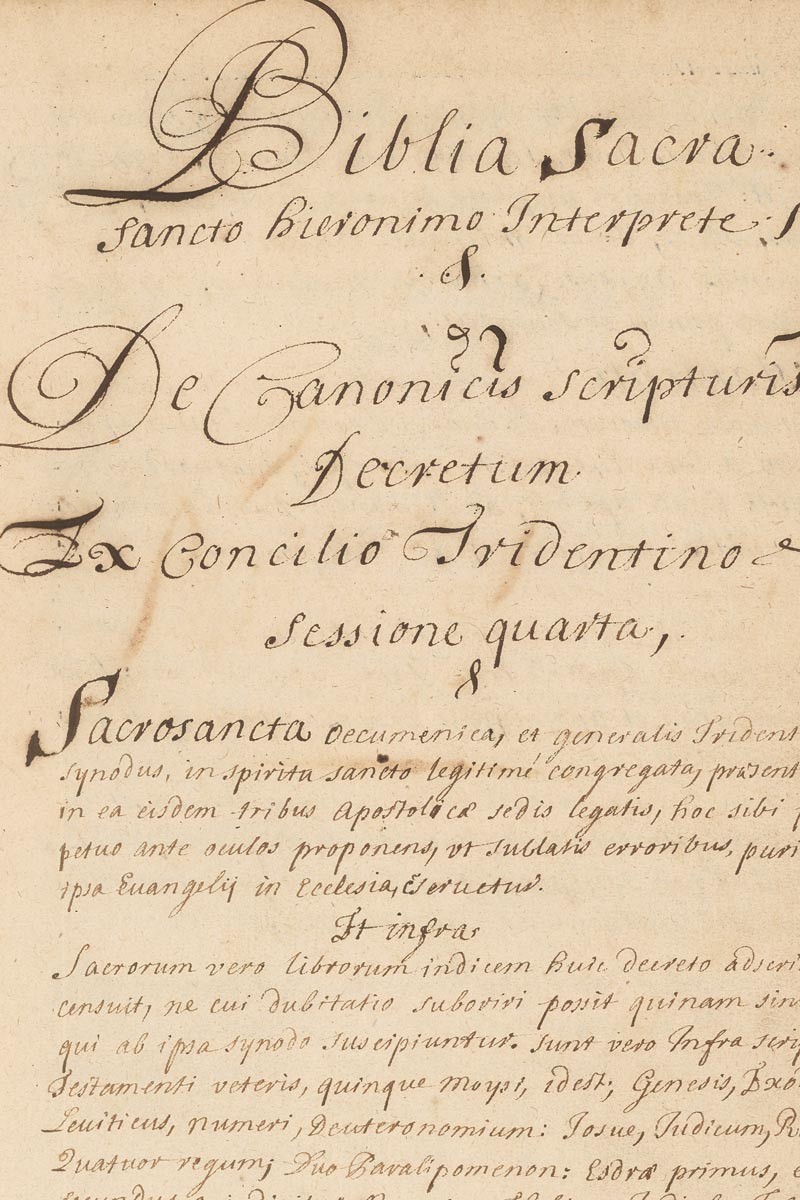 Biblia Sacra
sancto hieronimo Interprete
§.
De Canonicis scripturis
Decretum
Ex Concilio Tridentino
sessione quarta,
§
Sacrosancta Oecumenica, et generalis Trident
synodus, in spiritu sancto legitimé congregata, præsent
in ea eisdem tribus Apostolicæ sedis legatis, hoc sibi p
petuo ante oculos proponens, vt sublatis erroribus, puri
ipsa Euangelij in Ecclesia, cseruetur.
Et infra
Sacrorum vero librorum indicem huic decreto adscri
censuit, ne cui dubitatio suboriri possit quinam sin
qui ab ipsa synodo suscipiuntur. sunt vero Infra scrip
Testamenti veteris, quinque Moysi, idest; Genesis, Exo
Leuiticus, numeri, Deuteronomium: Iosue, Iudicum, R
Quatuor regum; Duo Paralipomenon: Esdræ primus, e